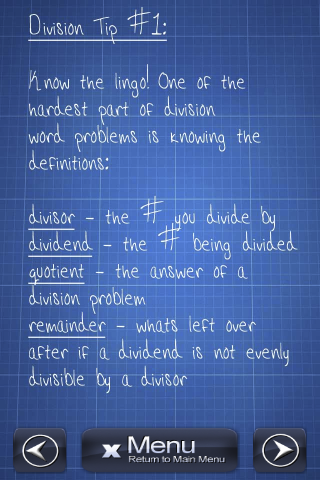 Division Tip #1:
Know the lingo! One of the
hardest part of division
word problems is knowing the
definitions:
divisor - the # you divide by
dividend - the # being divided
quotient - the answer of a
division problem
remainder - whats left over
after if a dividend is not evenly
divisible by a divisor
x Menu
Return to Main Menu